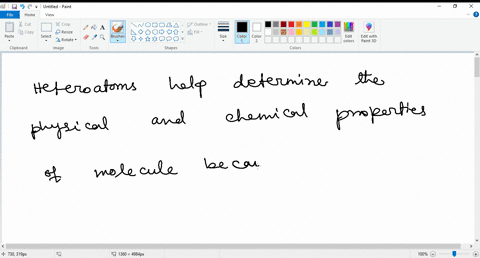 Untitled - Paint
File Home View
Paste
Select
Brushes
Size
Color 1
Color 2
Edit colors
Edit with Paint 3D
Clipboard Image Tools Shapes Colors
Outline
Fill
Heteroatoms help determine the
physical and chemical properties
of molecule becau
730, 219px
1380 × 4984px
100%